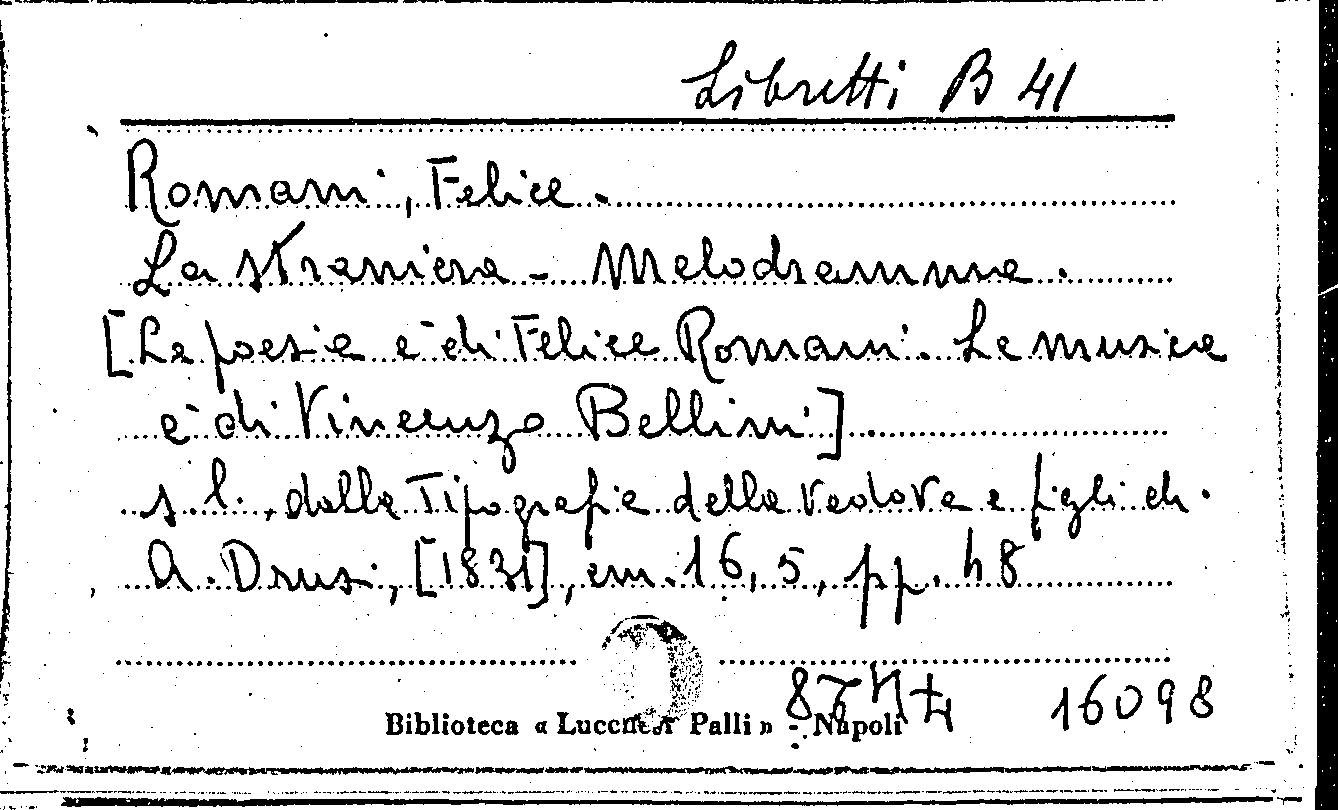 Libretti B 41
Romani, Felice.
La straniera - Melodramma.
[La poesia è di Felice Romani. La musica
è di Vincenzo Bellini].
s.l., dalla Tipografia della vedova e figli di
A. Drusi, [1831], cm. 16,5, pp. 48
16098
Biblioteca « Lucchesi Palli » - Napoli